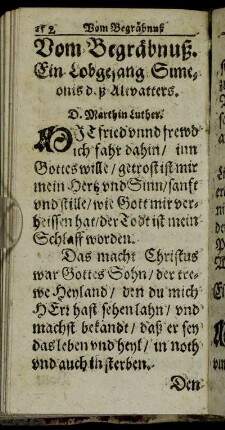 152. Vom Begräbnuß
Vom Begräbnuß.
Ein Lobgesang Sime⸗
onis d.ß Altvatters.
D. Marthin Luther.
MIT fried vnnd frewd
ich fahr dahin / inn
Gottes wille / getrost ist mir
mein Hertz vnd Sinn / sanft
vnd stille / wie Gott mir ver⸗
heissen hat / der Todt ist mein
Schlaff worden.
Das macht Christus
war Gottes Sohn / der tre⸗
we Heyland / den du mich
HErr hast sehen lahn / vnd
machst bekandt / daß er sey
das leben vnd heyl / in noth
vnd auch in sterben.
Den